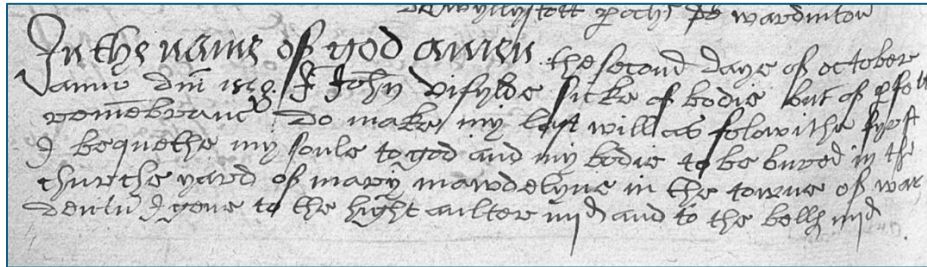 wardinton
In the name of god amen the second daye of october
anno dm I John Fifylde sicke of bodie but of pfett
do make my last will as folowithe fyrst
I bequethe my soule to god and my bodie to be bured in the
churche yard of mary mawdelyne in the towne of war
I geve to the hight aulter iiijd and to the bells iiijd